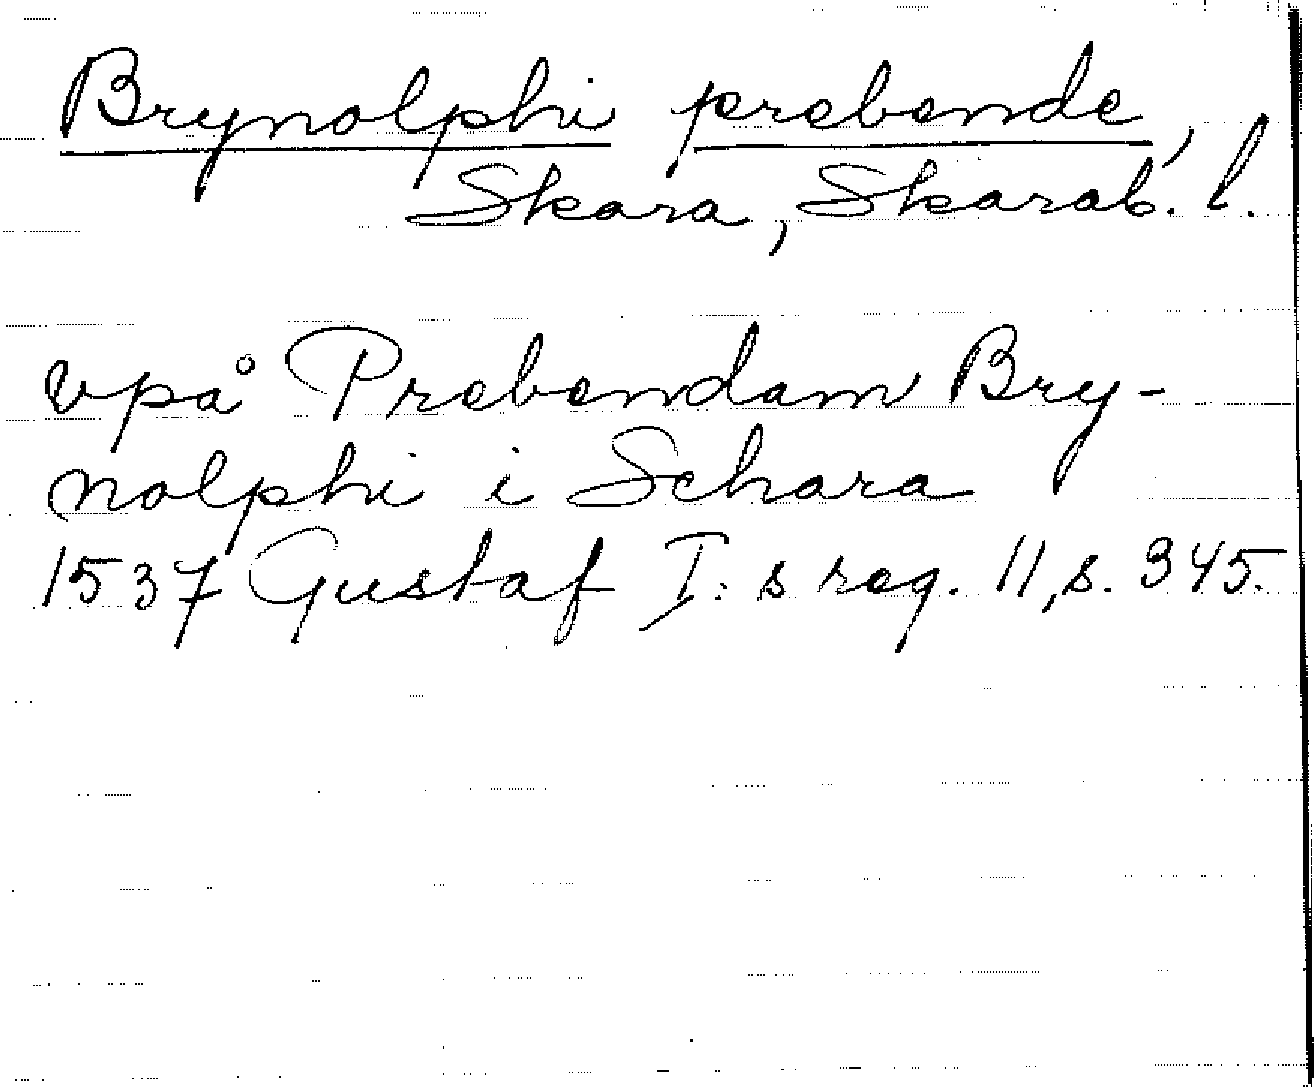 Brynolphi prebende,
Skara, Skarab. l.
vpå Prebendam Bry-
nolphi i Schara
1537 Gustaf I:s reg. 11, s. 345.